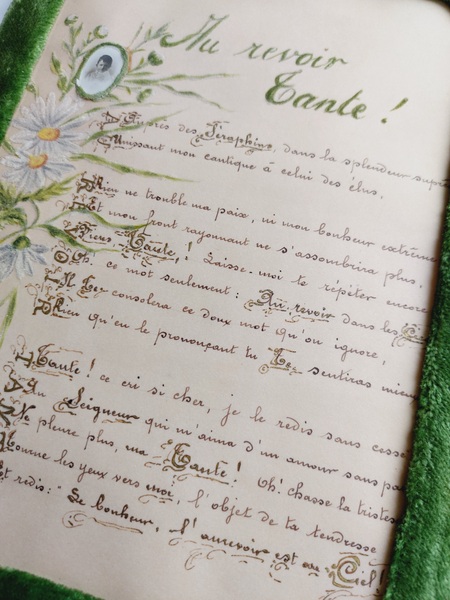 Au revoir
Tante !
Auprès des Séraphins, dans la splendeur suprê
Unissant mon cantique à celui des élus,
Rien ne trouble ma paix, ni mon bonheur extrême
Et mon front rayonnant ne s'assombrira plus.
Tiens Tante ! Laisse-moi te répéter encore
Oh! ce mot seulement : Au revoir dans les
Il te consolera ce doux mot qu'on ignore,
Rien qu'en le prononçant tu te sentiras mieux
Tante ! ce cri si cher, je le redis sans cesse
Au Seigneur qui m'aima d'un amour sans pa
Ne pleure plus, ma Tante ! Oh! chasse la tristes
Tourne les yeux vers moi, l'objet de ta tendresse
Et redis: " Le bonheur, l'aurevoir est au Ciel !